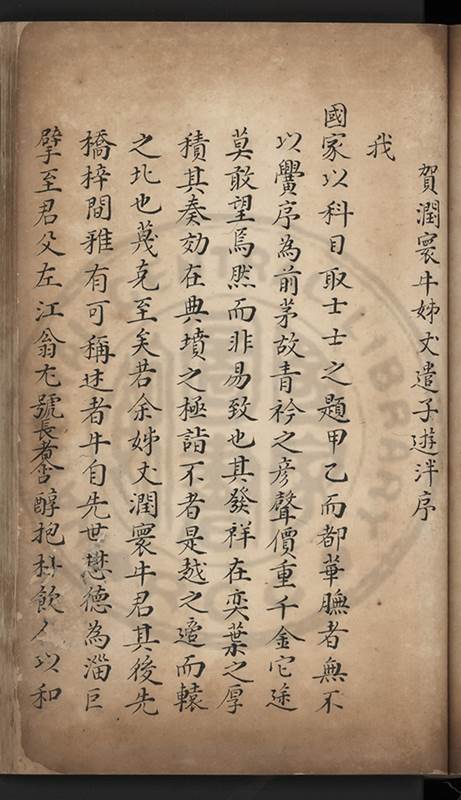 賀潤寰牛姊丈遣子遊泮序
我
國家以科目取士士之題甲乙而都華膴者無不
以黌序為前茅故青衿之彥聲價重千金它途
莫敢望焉然而非易致也其發祥在奕葉之厚
積其奏効在典墳之極詣不者是越之適而轅
之北也蔑克至矣若余姊丈潤寰牛君其後先
橋梓間雅有可稱述者牛自先世懋德為淄巨
擘至君父左江翁尤號長者含醇抱朴飲人以和